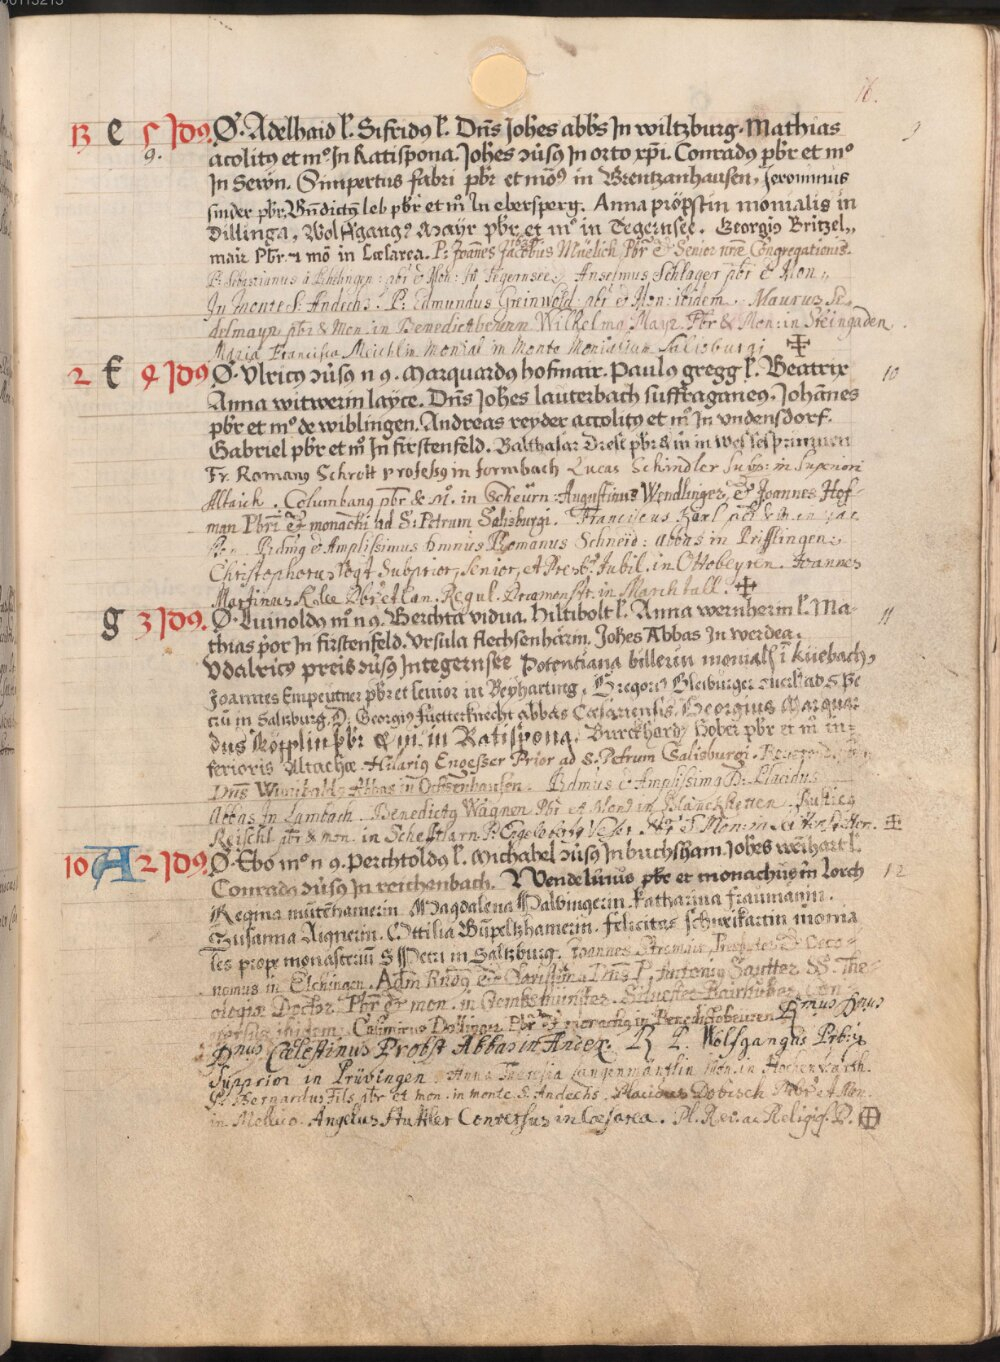 16.
13 e 5 Jdꝰ. O. Adelhaid l. Sifridꝰ l. Dn̄s Joh̄es abb̄s Jn wiltzburg. Mathias
9. acolitꝰ et mo Jn Ratispona. Joh̄es ꝯūsꝰ Jn orto xp̄i. Conradꝰ pb̄r et mo 9
Jn Sewn. Simpertus fabri pbr et mōꝰ in Brentzanhausen, Jeronimus
sinder pbr. Bn̄dictꝰ leb pbr et m̊ Jn ebersperg. Anna pröpstin monialis in
Dillinga, Wolfgangꝰ Mayr pbr et mo in Tegernsee. Georgiꝰ Britzel,,
mair Pbr et mō in Cæsarea. P. Joannes Jacobus Müelich Pbr & Senior nr̄æ Congregationis.
P. Sebastianus à Phelingen: pbr et Mon: In Tegernsee. Anselmus Schlager pbr & Mon.
In Monte S. Andechs. P. Edmundus Greinwold pbr & Mon: ibidem. Maurus Se
delmayr pbr & Mon: in Benedictbeuern Wilhelmꝰ Mayr Pbr & Mon: in Steingaden.
Maria Francisca Meichlin Monial in Monte Monialium Salisburgi
2 f 4 Jdꝰ O. Vlricꝰ ꝯūsꝰ n 9. Marquardꝰ hofmair. Paulꝰ gregg l. Beatrix 10
Anna witwerin layce. Dn̄s Joh̄es lauterbach suffraganeꝰ. Johānes
pbr et mo de wiblingen. Andreas reyder accolitꝰ et m̊ Jn vndensdorf.
Gabriel pbr et m̊ Jn firstenfeld. Balthasar Diesl pbr & m̄ in Wessesprunnen
Fr. Romanꝰ Schrott professꝰ in formbach Lucas Schindler Subd: in Superiori
Altaich. Columbanꝰ pbr & M. in Scheürn: Augustinus Wendlinger, & Joannes Hof-
man Pbri & monachi ad S: Petrum Salisburgi. Franciscus Karl pbr & m in
Rdm̄ꝰ & Amplissimus Dminus Romanus Schneid: abbas in Prifflingen.
Christophorus Vogt Subprior, Senior, et Presb. Jubil. in Ottobeyren. Joannes
Martinus Klee Pbr et Can. Regul. Præmonstr. in Marchtall.
g 3 Jdꝰ. O. Luinoldꝰ m̊ n 9. Berchta vidua. Hiltibolt l. Anna wernherin l. Ma- 11
thias p̄or Jn firstenfeld. Vrsula flechsenhärin. Joh̄es Abbas Jn werdea.
Vdalricꝰ preis ꝯūsꝰ Jn tegernsee Potentiana billerin monial̄ ī küebach,
Joannes Empeutner pbr et senior in Beÿharting, Gregoriꝰ Bleiburger ad S. Pe
trū in Saltzburg. D. Georgiꝰ fuetterknecht abbas Cæsariensis. Georgius Marquar
dus Röpplin pbr & m̄ in Ratispona. Burckhardꝰ Hober pbr et m̊ in in-
ferioris Altachæ. Hilariꝰ Engesser Prior ad S. Petrum Salisburgi.
Dn̄s Wunibaldꝰ Abbas in Ochsenhausen. Rdmus & Amplissimꝰ D: Placidus
Abbas in Lambach. Benedictꝰ Wagner Pbr et Mon. in Planckstetten. Rusticꝰ
Reischl pbr & mon. in Schefftlarn P. Engelbertꝰ
10 A 2 Jdꝰ. O. Ebo mo n 9. perchtoldꝰ l. Michahel ꝯūsꝰ Jn buchsham. Joh̄es weihart l.
Conradꝰ ꝯūsꝰ Jn reichenbach. Wendelinus pbr et monachus in Lorch 12
Regina mūtehamerin Magdalena Palbingerin Katharina fraumanin.
Susanna Aignerin. Ottilia Gūpeltzhamerin. felicitas schweikartin monia
les prope monasteriū S Petri in Saltzburg. Joannes Presbyter & Oeco-
nomus in Elchingen. Adm Rndꝰ & Clarissimꝰ Dn̄s P. Antoniꝰ Sautter SS. The-
ologiæ Doctor Pbr & mon. in
ibidem. Casimirus Dollinger Pbr & monachꝰ in Benedictobeuren Rmus Dnus
Dnus Cælestinus Probst Abbas in Andex. R P. Wolfgangus Prb: &
Supprior in Prüvingen Anna Theresia Langenmäntlin Mon. in Hochenwarth.
P. Bernardus Fils pbr et mon. in monte S. Andechs. Placidus Dobisch Pbr et Mon.
in Mellico. Angelus Stuttler Conversus in Cæsarea. Pl. Rev. ac Religios. P.